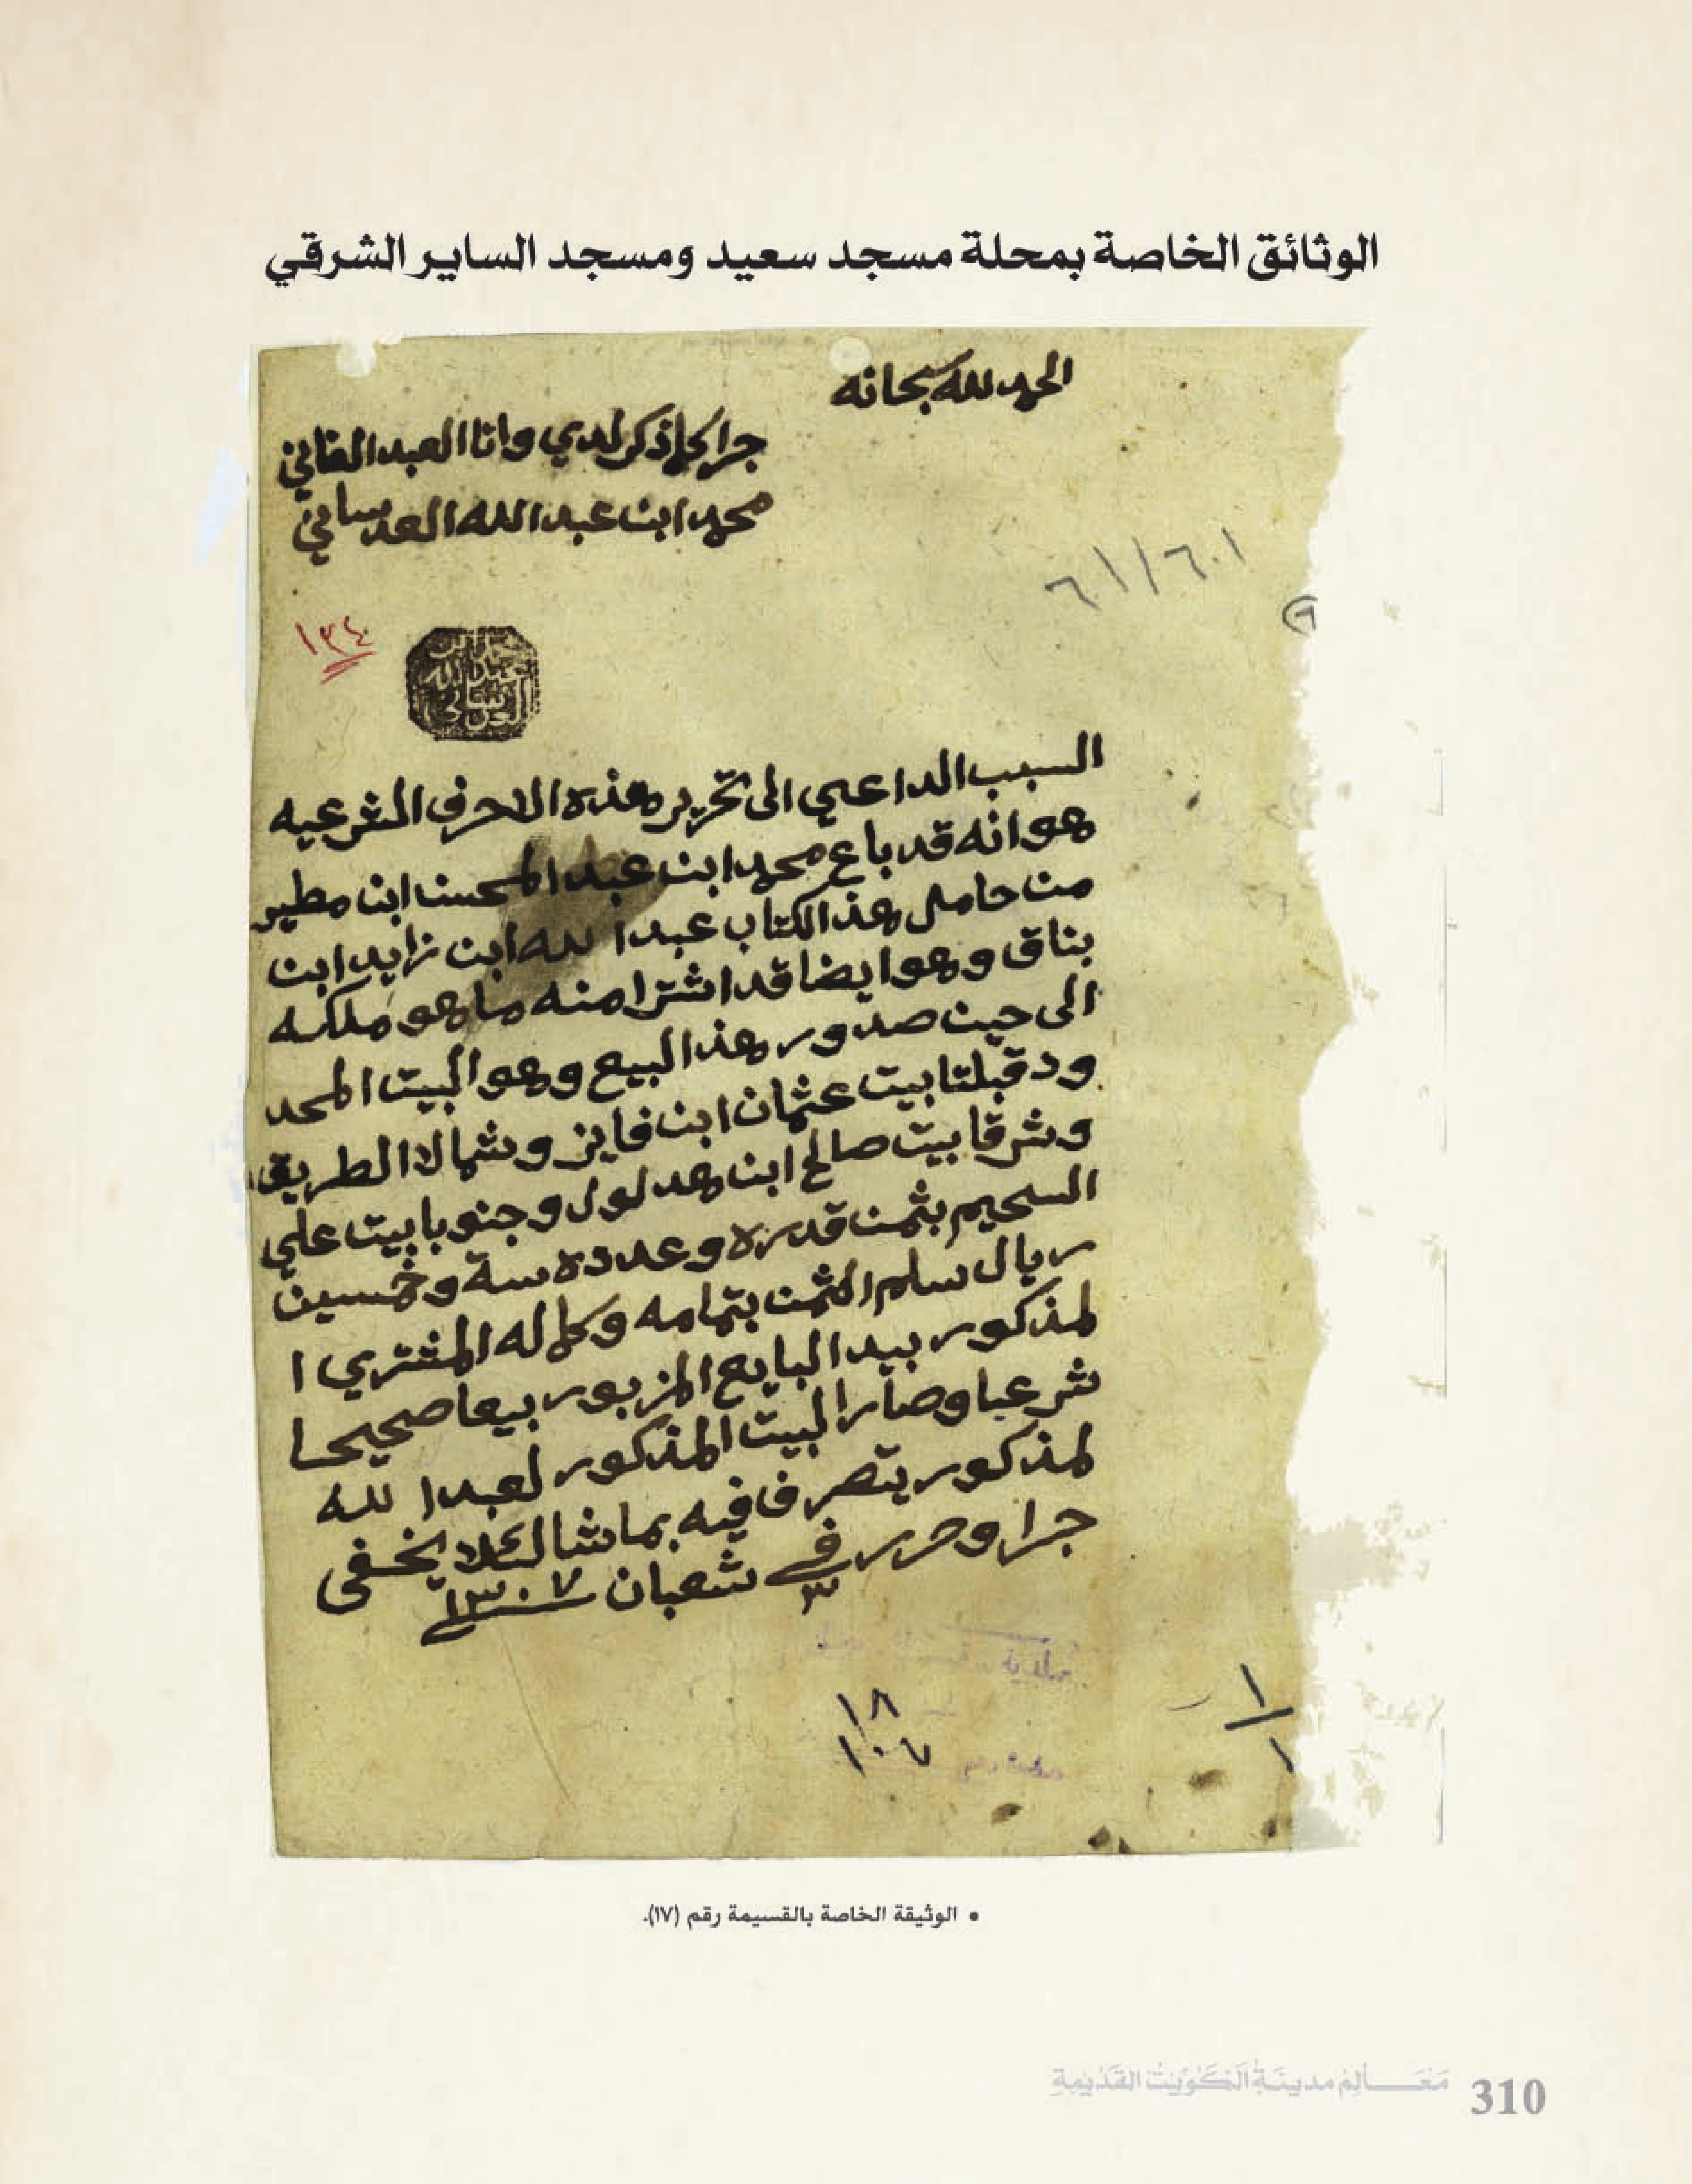 الوثائق الخاصة بمحلة مسجد سعيد ومسجد الساير الشرقي
الحمد لله سبحانه
جرا كلما ذكر لدي وانا العبد الفاني
محمد ابن عبد الله العدساني
٦٠١/٦١
٦
١٣٤
محمد بن
عبد الله
العدساني
السبب الداعي الى تحرير هذه الاحرف الشرعيه
هو انه قد باع محمد ابن عبد المحسن ابن مطير
من حامل هذا الكتاب عبد الله ابن زايد ابن
بناق وهو ايضا قد اشترا منه ما هو ملكه
الى حين صدور هذا البيع وهو البيت المحد
ود قبلتا بيت عثمان ابن فايز وشمالا الطريق
وشرقا بيت صالح ابن هدلول وجنوبا بيت علي
السحيم بثمن قدره وعدده ستة وخمسين
ريال سلم الثمن بتمامه وكماله المشتري ا
لمذكور بيد البايع المزبور بيعا صحيحا
شرعيا وصار البيت المذكور لعبد الله
لمذكور يتصرف فيه بما شا لئلا يخفى
جرا وحرر في ٣ شعبان ١٣٠٧
١٨
١٠٧
١
١
• الوثيقة الخاصة بالقسيمة رقم (١٧).
مَعَالِمُ مدينَةِ الكُوَيْتِ القَدِيمَةِ 310